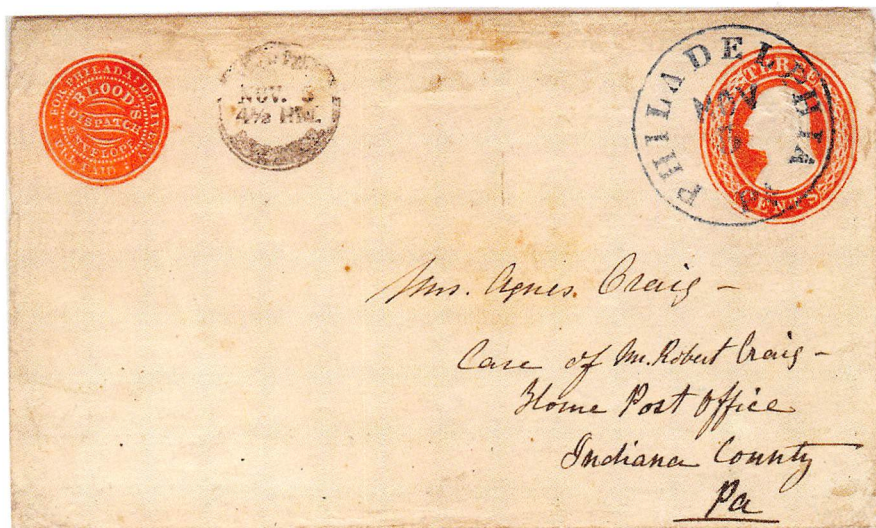 FOR PHILADA. DELIVERY
BLOOD'S
DISPATCH
ENVELOPE
PRE-PAID
NOV. 3
4½ PM.
PHILADELPHIA Pa
NOV
THREE
CENTS
Mrs. Agnes. Craig –
Care of Mr. Robert Craig –
Home Post Office
Indiana County
Pa